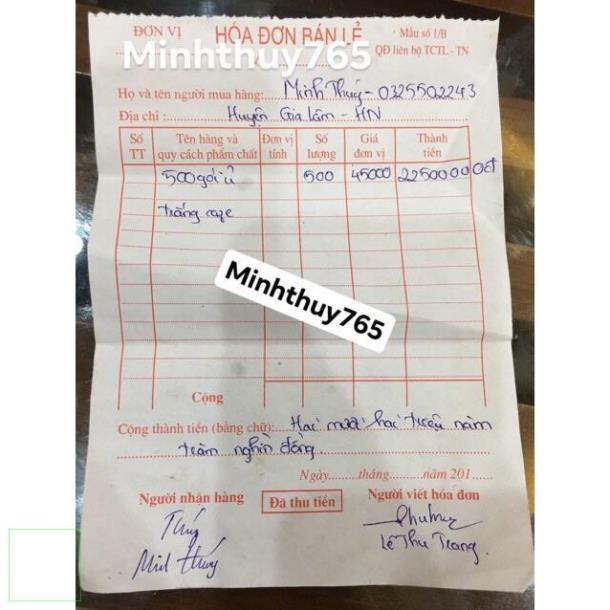 ĐƠN VỊ HÓA ĐƠN BÁN LẺ Mẫu số 1/B
Minhthuy765 QĐ liên bộ TCTL - TN
Họ và tên người mua hàng: Minh Thúy - 0325502243
Địa chỉ : Huyện Gia Lâm - HN
Số TT Tên hàng và quy cách phẩm chất Đơn vị tính Số lượng Giá đơn vị Thành tiền
500 gói ủ 500 45000 22500000đ
trắng
Minhthuy765
Cộng
Cộng thành tiền (bằng chữ): Hai mươi hai triệu năm
trăm nghìn đồng.
Ngày........tháng.........năm 201......
Người nhận hàng Đã thu tiền Người viết hóa đơn
Thúy
Minh Thúy Lê Thu Trang